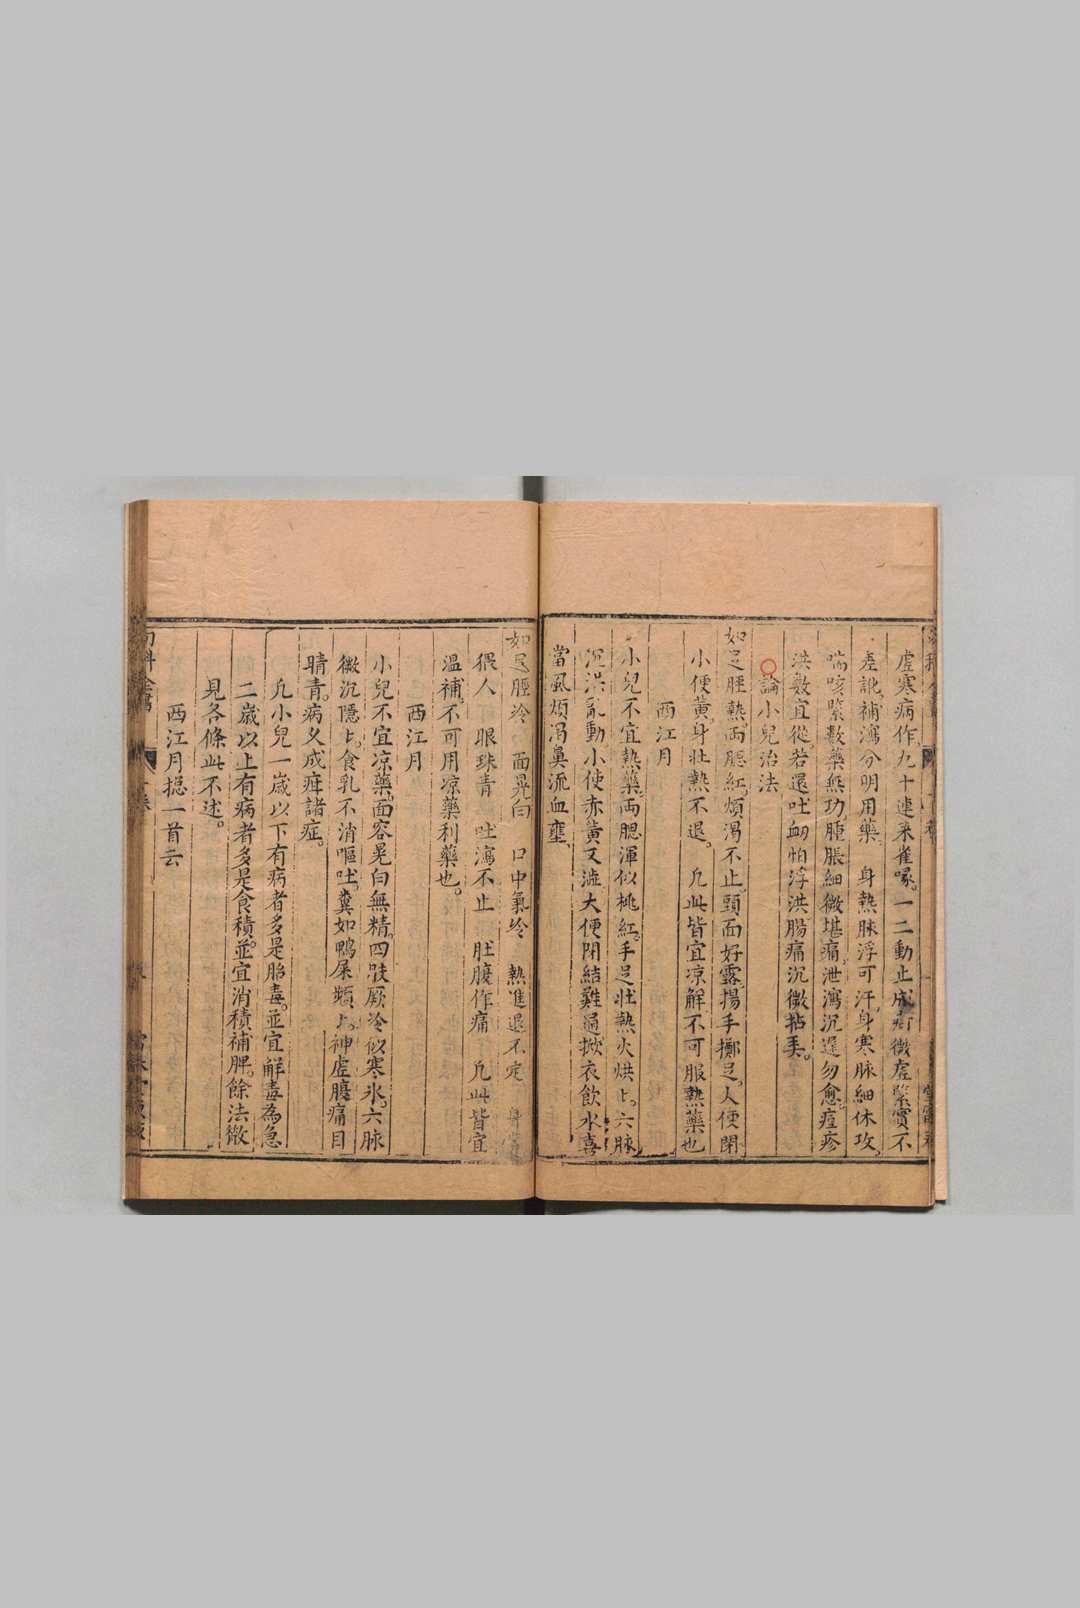 虛寒病作九十連來雀啄一二動止成痾微虛緊實不
差訛補瀉分明用藥 身熱脉浮可汗身寒脉細休攻
喘咳緊數藥無功腫脹細微堪痛泄瀉沉遲勿愈痘疹
洪數宜從若還吐衂怕浮洪腸痛沉微拈美
論小兒治法
如足脛熱两腮紅煩渴不止頭面好露揚手擲足大便閉
小便黄身壯熱不退 凡此皆宜凉解不可服熱藥也
西江月
小兒不宜熱藥两腮渾似桃紅手足壯熱火烘上六脉
沉洪亂動小便赤黄又澁大便閉結難通揿衣飲水喜
當風煩渴鼻流血壅
如足脛冷 面晃白 口中氣冷 熱進退不定
猥人 眼珠青 吐瀉不止 肚腹作痛 凡此皆宜
溫補不可用凉藥利藥也
西江月
小兒不宜凉藥面容晃白無精四肢厥冷似寒氷六脉
微沉隱上食乳不消嘔吐糞如鴨屎頻上神虛腹痛目
睛青病久成疳諸症
凡小兒一歲以下有病者多是胎毒並宜觧毒為急
二歲以上有病者多是食積並宜消積補脾餘法微
見各條此不述
西江月揔一首云